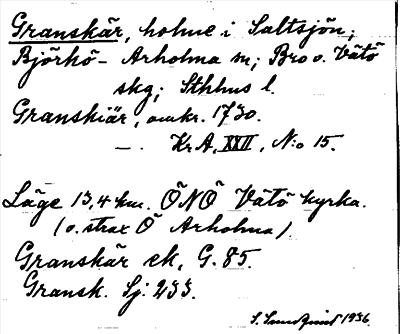 Granskär, holme i Saltsjön;
Björkö-Arholma sn; Bro o. Vätö
skg; Sthlms l.
Granskiär, omkr. 1730.
—. KrA, XXII, N:o 15.
Läge 13,4 km. ÖNÖ Vätö kyrka.
(o. strax Ö Arholma)
Granskär ek, G. 85.
Gransk. Sj: 233.
S. Sundquist 1936